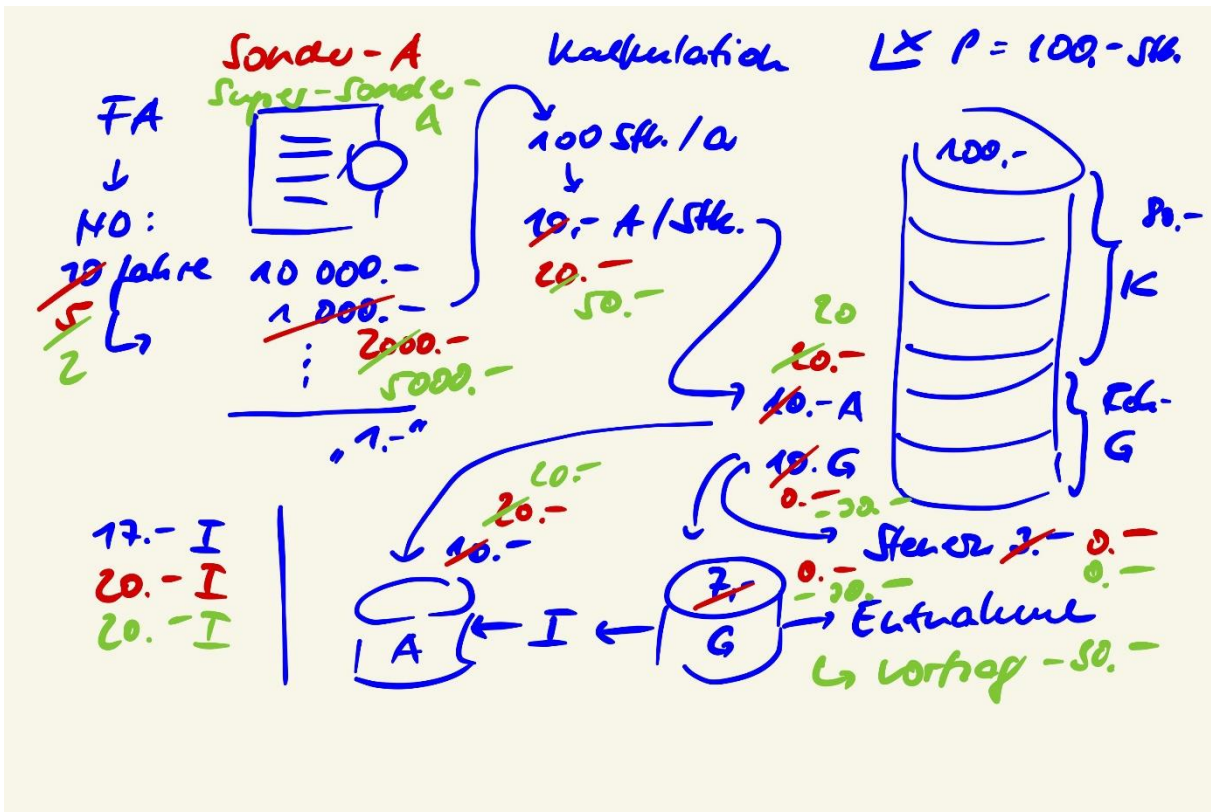 Sonder-A
Super-Sonder-
A
Kalkulation
P = 100,- Stk.
FA
ND:
10 Jahre
5
2
10 000.-
1 000.-
2000.-
5000.-
"1.-"
100 Stk. / a
10,- A / Stk.
20.-
50.-
100,-
80.-
K
Roh-
G
20
20.-
10.- A
10. G
0.-
Steuern 3.- 0.-
0.-
20.-
20.-
10.-
17.- I
20.- I
20.- I
A
I
7,-
G
0.-
-30.-
Entnahme
Vortrag